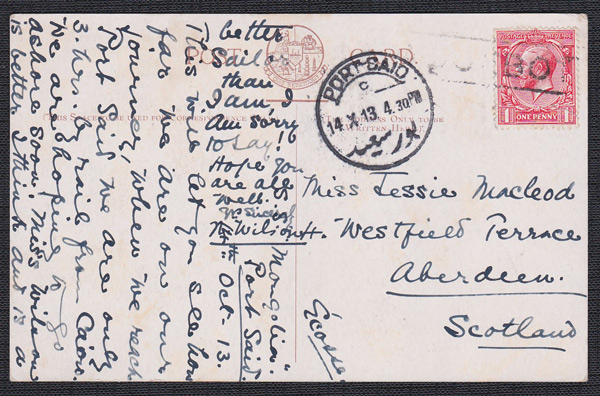 POST CARD
THIS SPACE TO BE USED FOR CORRESPONDENCE
THE ADDRESS ONLY TO BE
WRITTEN HERE.
This will let you see how
far we are on our
journey, when we reach
Port Said we are only
3 hrs. by rail from Cairo.
We are hoping to go
ashore soon. Mrs Wilson
is better I think and is a
better
Sailor
than I
am. I
am sorry
to say!
Hope you
are all
well.
Wilson
Mongolia
Port Said.
14th Oct-13.
PORT-SAID
C
14 X 13 4.30PM
بور سعيد
POSTAGE
ONE PENNY
1
1
BO
Miss Jessie Macleod
Westfield Terrace
Aberdeen.
Scotland
Écosse